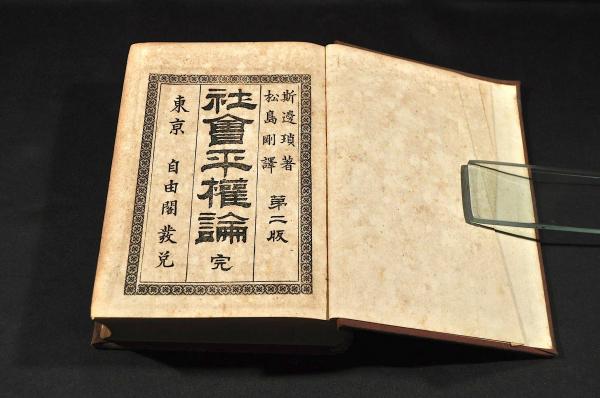 斯邊瑣著
松島剛譯
第二版
社會平權論
完
東京
自由閣發兌